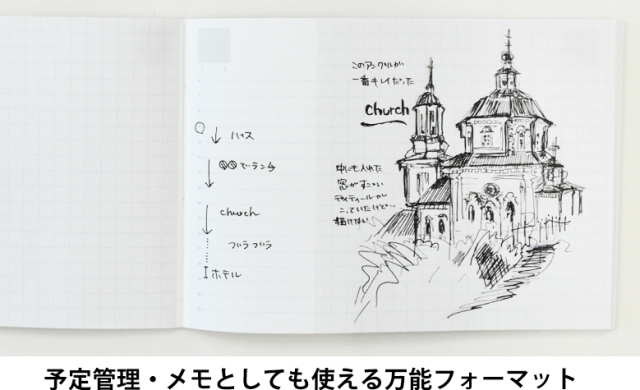 このアングルが
一番キレイだった
church
中にも入れた
窓がすごい
ディティールが
こっていたけど…
描けない
バス
でランチ
church
ブラブラ
ホテル
予定管理・メモとしても使える万能フォーマット